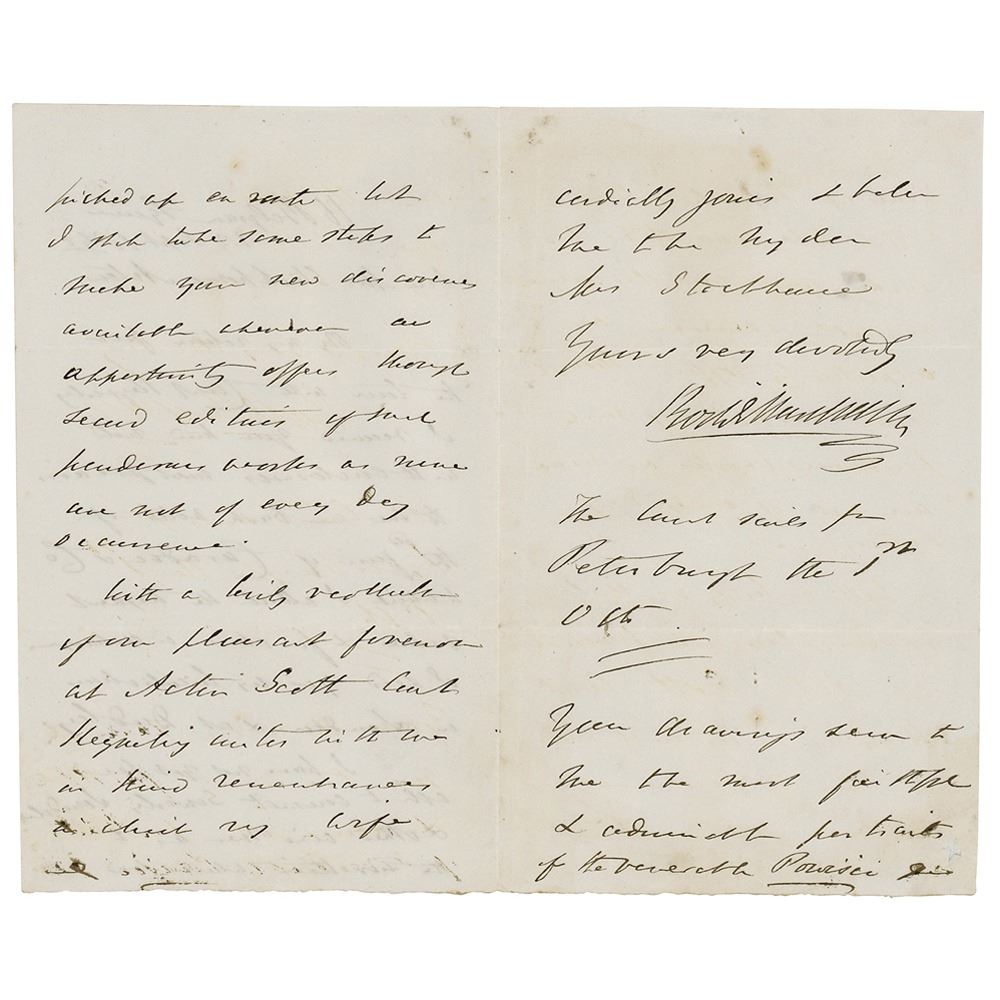 picked up en route but
I shall take some steps to
make your new discoveries
available whenever an
opportunity offers though
second editions of such
ponderous works as mine
are not of every day
occurrence.
With a lively recollection
of our pleasant forenoon
at Acton Scott Count
Keyserling unites with me
in kind remembrances
in which my wife
cordially joins & believe
me to be my dear
Mrs Stackhouse
Yours very devotedly
Rod I Murchison
The Count sails for
Petersburgh the 1st
Oct.
Your drawings seem to
me the most faithful
& admirable portraits
of the venerable